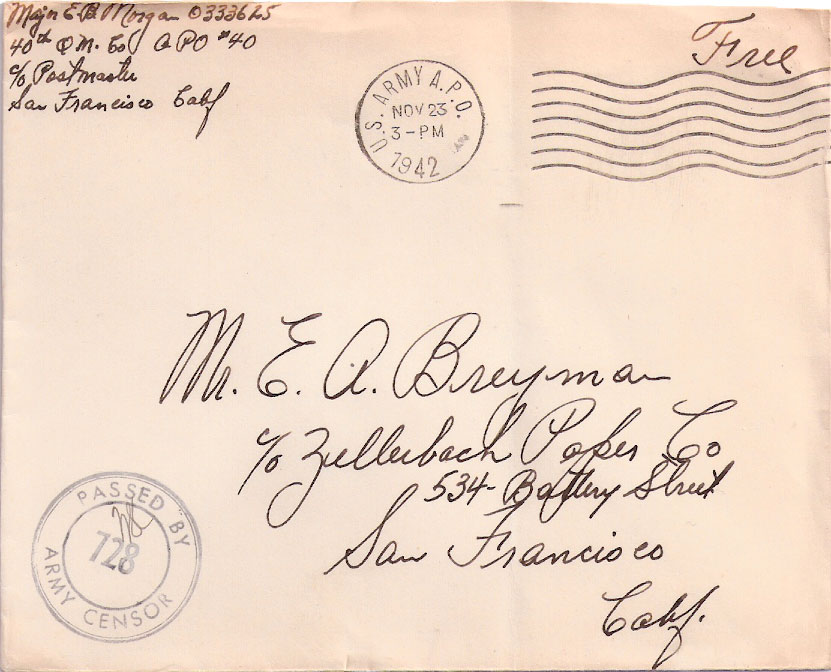 Major E. B. Morgan O333625
40th Q M. Co A PO #40
c/o Postmaster
San Francisco Calif
Free
U.S. ARMY A.P.O.
NOV 23
3-PM
1942
Mr. E. A. Breyman
c/o Zellerbach Paper Co
534- Battery Street
San Francisco
Calif.
PASSED BY
728
ARMY CENSOR